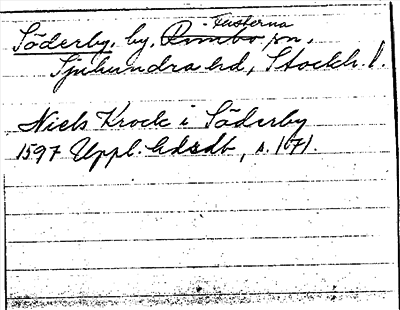 Fasterna
Söderby, by, Rimbo sn,
Sjuhundra hd, Stockh. l.
Niels Krock i Söderby
1597 Uppl. hdsdb, s. 171.